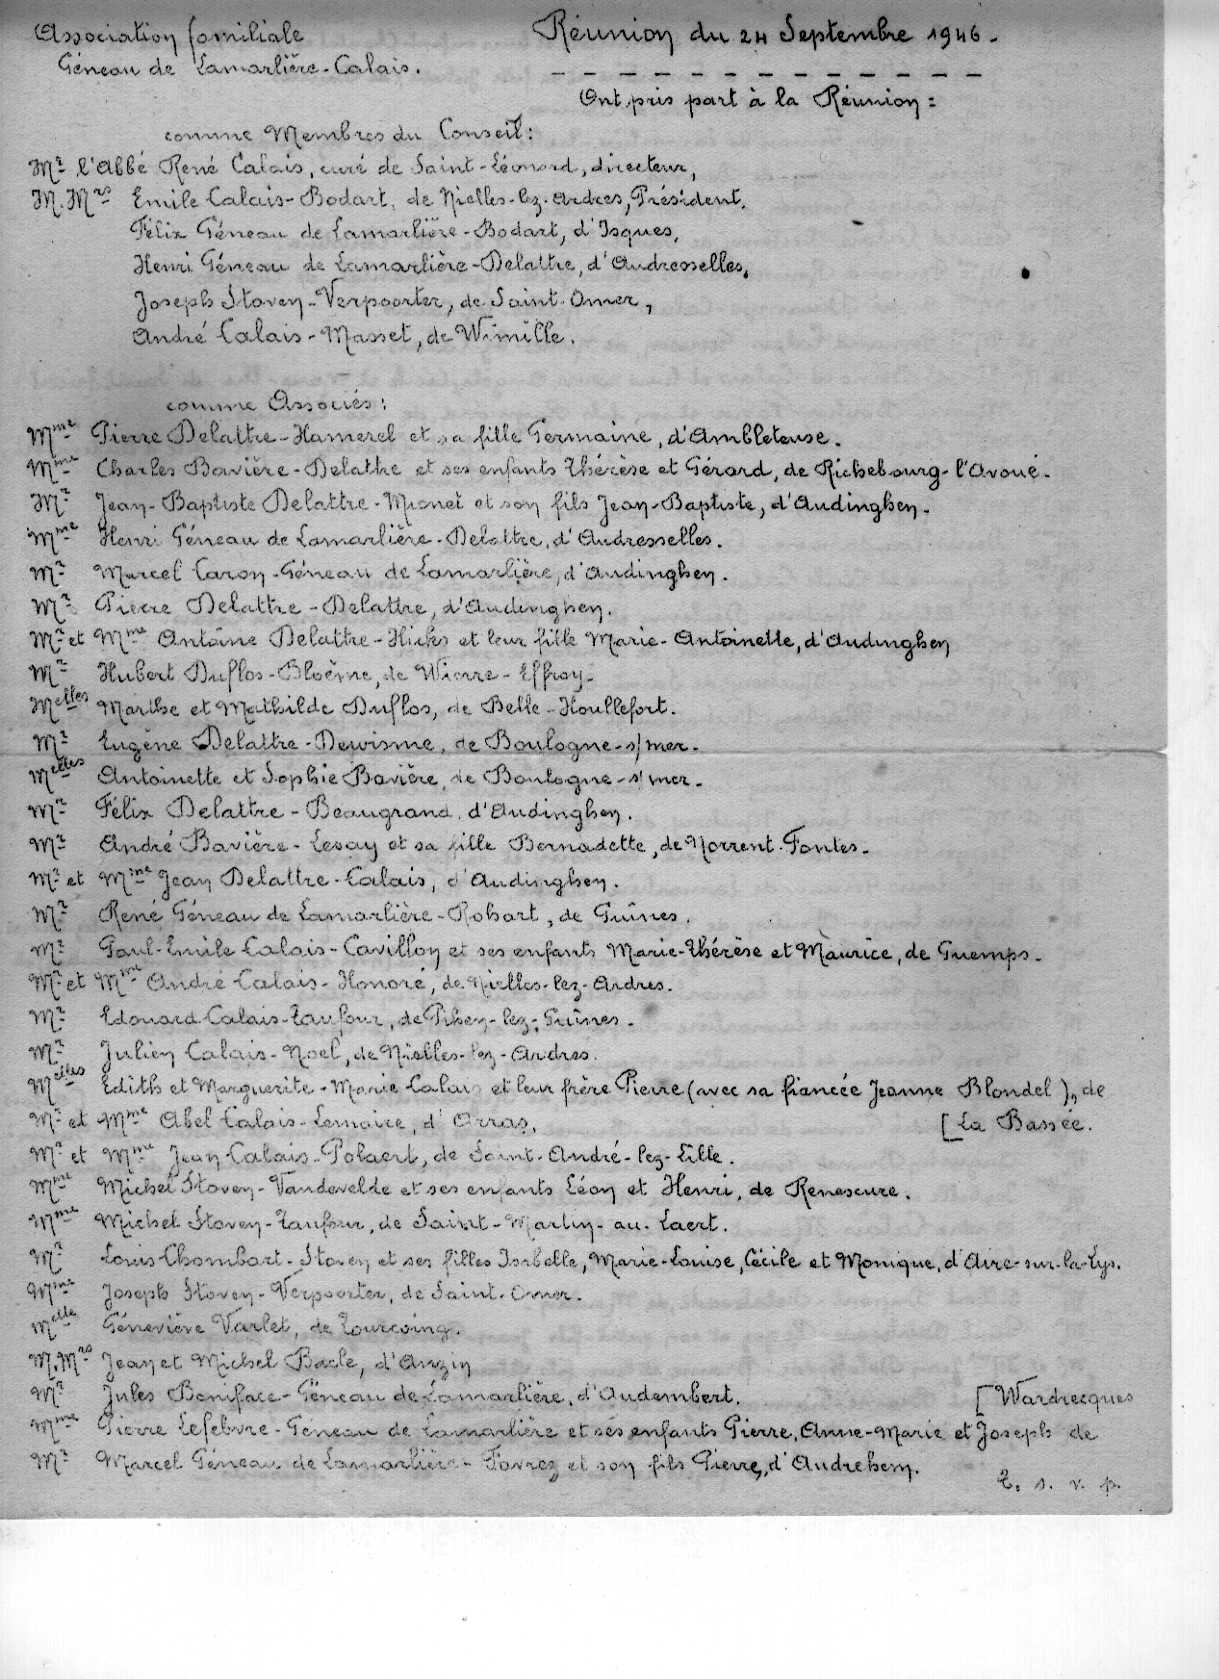 Association familiale
Géneau de Lamarlière-Calais.
Réunion du 24 Septembre 1946.
Ont pris part à la Réunion :
comme Membres du Conseil :
Mr l'Abbé René Calais, curé de Saint-Léonard, directeur,
M.Mrs Emile Calais-Bodart, de Nielles-lez-Ardres, Président.
Félix Géneau de Lamarlière-Bodart, d'Isques,
Henri Géneau de Lamarlière-Delattre, d'Audresselles,
Joseph Stoven-Verpoorter, de Saint-Omer,
André Calais-Masset, de Wimille.
comme Associés :
Mme Pierre Delattre-Hamerel et sa fille Germaine, d'Ambleteuse.
Mme Charles Bavière-Delattre et ses enfants Thérèse et Gérard, de Richebourg-l'Avoué.
Mr Jean-Baptiste Delattre-Mionet et son fils Jean-Baptiste, d'Audinghen.
Mme Henri Géneau de Lamarlière-Delattre, d'Audresselles.
Mr Marcel Caron-Géneau de Lamarlière, d'Audinghen.
Mr Pierre Delattre-Delattre, d'Audinghen.
Mr et Mme Antoine Delattre-Hicks et leur fille Marie-Antoinette, d'Audinghen
Mr Hubert Duflos-Bloëme, de Wierre-Effroy.
Melles Marthe et Mathilde Duflos, de Belle-Houllefort.
Mr Eugène Delattre-Dewisme, de Boulogne-s/mer.
Melles Antoinette et Sophie Bavière, de Boulogne-s/mer.
Mr Félix Delattre-Beaugrand, d'Audinghen.
Mr André Bavière-Lesay et sa fille Bernadette, de Norrent-Fontes.
Mr et Mme Jean Delattre-Calais, d'Audinghen.
Mr René Géneau de Lamarlière-Robart, de Guînes.
Mr Paul-Emile Calais-Cavillon et ses enfants Marie-Thérèse et Maurice, de Guemps.
Mr et Mme André Calais-Honoré, de Nielles-lez-Ardres.
Mr Edouard Calais-Taufour, de Pihen-lez-Guînes.
Mr Julien Calais-Noël, de Nielles-lez-Ardres.
Melles Edith et Marguerite-Marie Calais et leur frère Pierre (avec sa fiancée Jeanne Blondel), de
Mr et Mme Abel Calais-Lemaire, d'Arras. [La Bassée.
Mr et Mme Jean Calais-Polaert, de Saint-André-lez-Lille.
Mme Michel Stoven-Vandevelde et ses enfants Léon et Henri, de Renescure.
Mme Michel Stoven-Taufour, de Saint-Martin-au-Laert.
Mr Louis Chombart-Stoven et ses filles Isabelle, Marie-Louise, Cécile et Monique, d'Aire-sur-la-Lys.
Mme Joseph Stoven-Verpoorter, de Saint-Omer.
Melle Géneviève Varlet, de Tourcoing.
M.Mrs Jean et Michel Bacle, d'Anzin
Mr Jules Boniface-Géneau de Lamarlière, d'Audembert. [Wardrecques
Mme Pierre Lefebvre-Géneau de Lamarlière et ses enfants Pierre, Anne-Marie et Joseph de
Mr Marcel Géneau de Lamarlière-Favrez et son fils Pierre, d'Audrehem.
T. s. v. p.